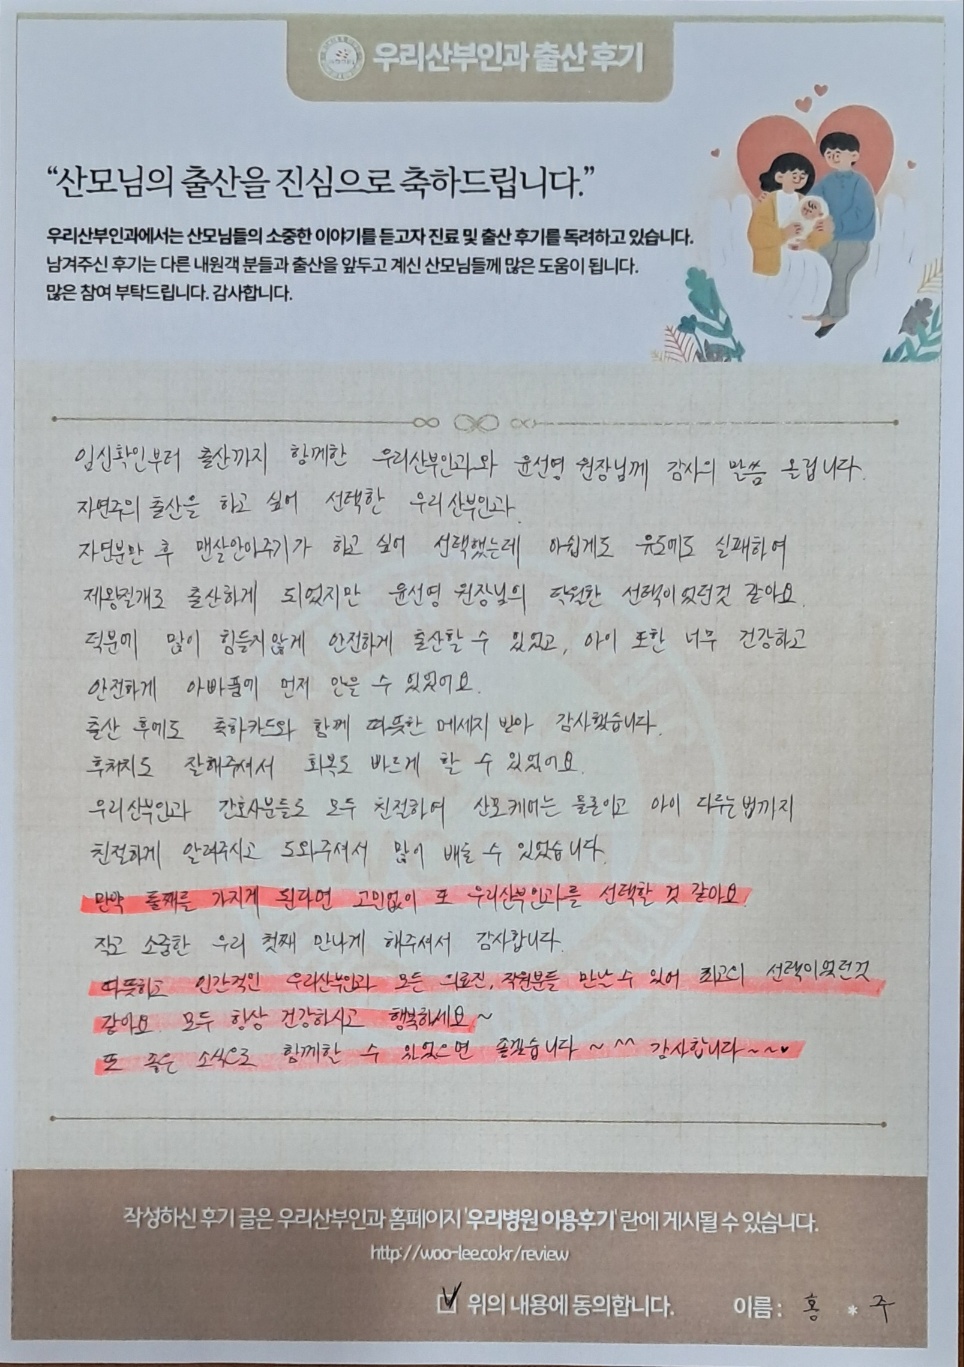 우리산부인과 출산 후기
“산모님의 출산을 진심으로 축하드립니다.”
우리산부인과에서는 산모님들의 소중한 이야기를 듣고자 진료 및 출산 후기를 독려하고 있습니다.
남겨주신 후기는 다른 내원객 분들과 출산을 앞두고 계신 산모님들께 많은 도움이 됩니다.
많은 참여 부탁드립니다. 감사합니다.
임신확인부터 출산까지 함께한 우리산부인과와 윤선영 원장님께 감사의 말씀 올립니다.
자연주의 출산을 하고 싶어 선택한 우리산부인과.
자연분만 후 맨살안아주기가 하고 싶어 선택했는데 아쉽게도 유도에도 실패하여
제왕절개로 출산하게 되었지만 윤선영 원장님의 탁월한 선택이었던것 같아요.
덕분에 많이 힘들지않게 안전하게 출산할 수 있었고, 아이 또한 너무 건강하고
안전하게 아빠품에 먼저 안을 수 있었어요.
출산 후에도 축하카드와 함께 따뜻한 메세지 받아 감사했습니다.
후처치도 잘해주셔서 회복도 빠르게 할 수 있었어요.
우리산부인과 간호사분들도 모두 친절하여 산모케어는 물론이고 아이 다루는법까지
친절하게 알려주시고 도와주셔서 많이 배울 수 있었습니다.
만약 둘째를 가지게 된다면 고민없이 또 우리산부인과를 선택할 것 같아요.
작고 소중한 우리 첫째 만나게 해주셔서 감사합니다.
따뜻하고 인간적인 우리산부인과 모든 의료진, 직원분들 만날 수 있어 최고의 선택이었던것
같아요. 모두 항상 건강하시고 행복하세요~
또 좋은 소식으로 함께할 수 있었으면 좋겠습니다~^^ 감사합니다~~♥
작성하신 후기 글은 우리산부인과 홈페이지 '우리병원 이용후기' 란에 게시될 수 있습니다.
http://woo-lee.co.kr/review
위의 내용에 동의합니다. 이름 : 홍 * 주